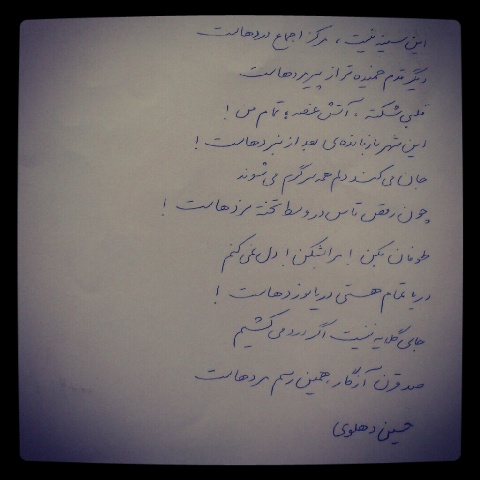 این سینه نیست، مرکز اجماع دردهاست
دیگر قدم خمیده‌تر از پیرمردهاست
قلبی شکسته، آتش غصه، تمام من!
این شهر بازمانده‌ی بعد از نبردهاست!
جان می‌کنند دلم همه سرگرم می‌شوند
چون رقص تاس در وسط تخته نردهاست!
طوفان بکن! مرا بشکن! دل نمی‌کنم
دریا تمام هستی دریانوردهاست!
جای گلایه نیست اگر درد می‌کشیم
صد قرن آزگار، همین رسم مردهاست
حسین دهلوی